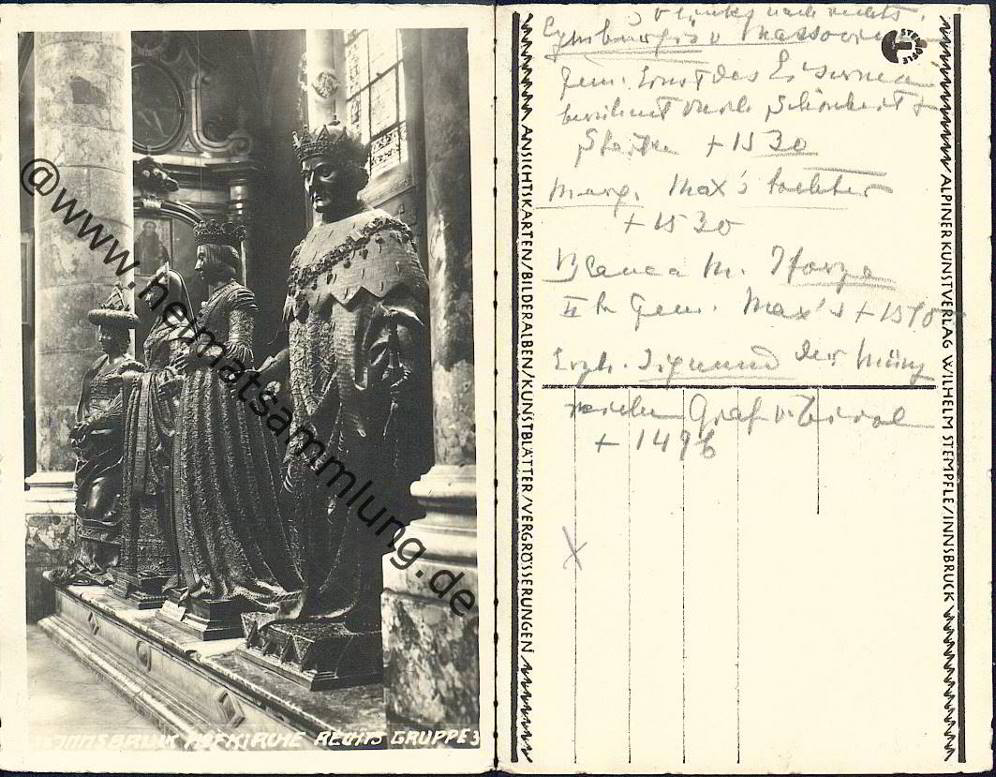 @www.heimatsammlung.de
INNSBRUCK HOFKIRCHE RECHTS GRUPPE 3
v links nach rechts.
v Massovien
Gem. Ernst des Eisernen
berühmt durch Schönheit +
Stärke +1530
Marg. Max's Tochter
+1530
Blanca M. Sforza
II te Gem. Max's +1510
Erzh. Sigmund der Münz
reiche Graf v. Tirol
+ 1496
X
STEMPFLE
ANSICHTKARTEN/BILDERALBEN/KUNSTBLÄTTER/VERGRÖSSERUNGEN
ALPINER KUNSTVERLAG WILHELM STEMPFLE/INNSBRUCK